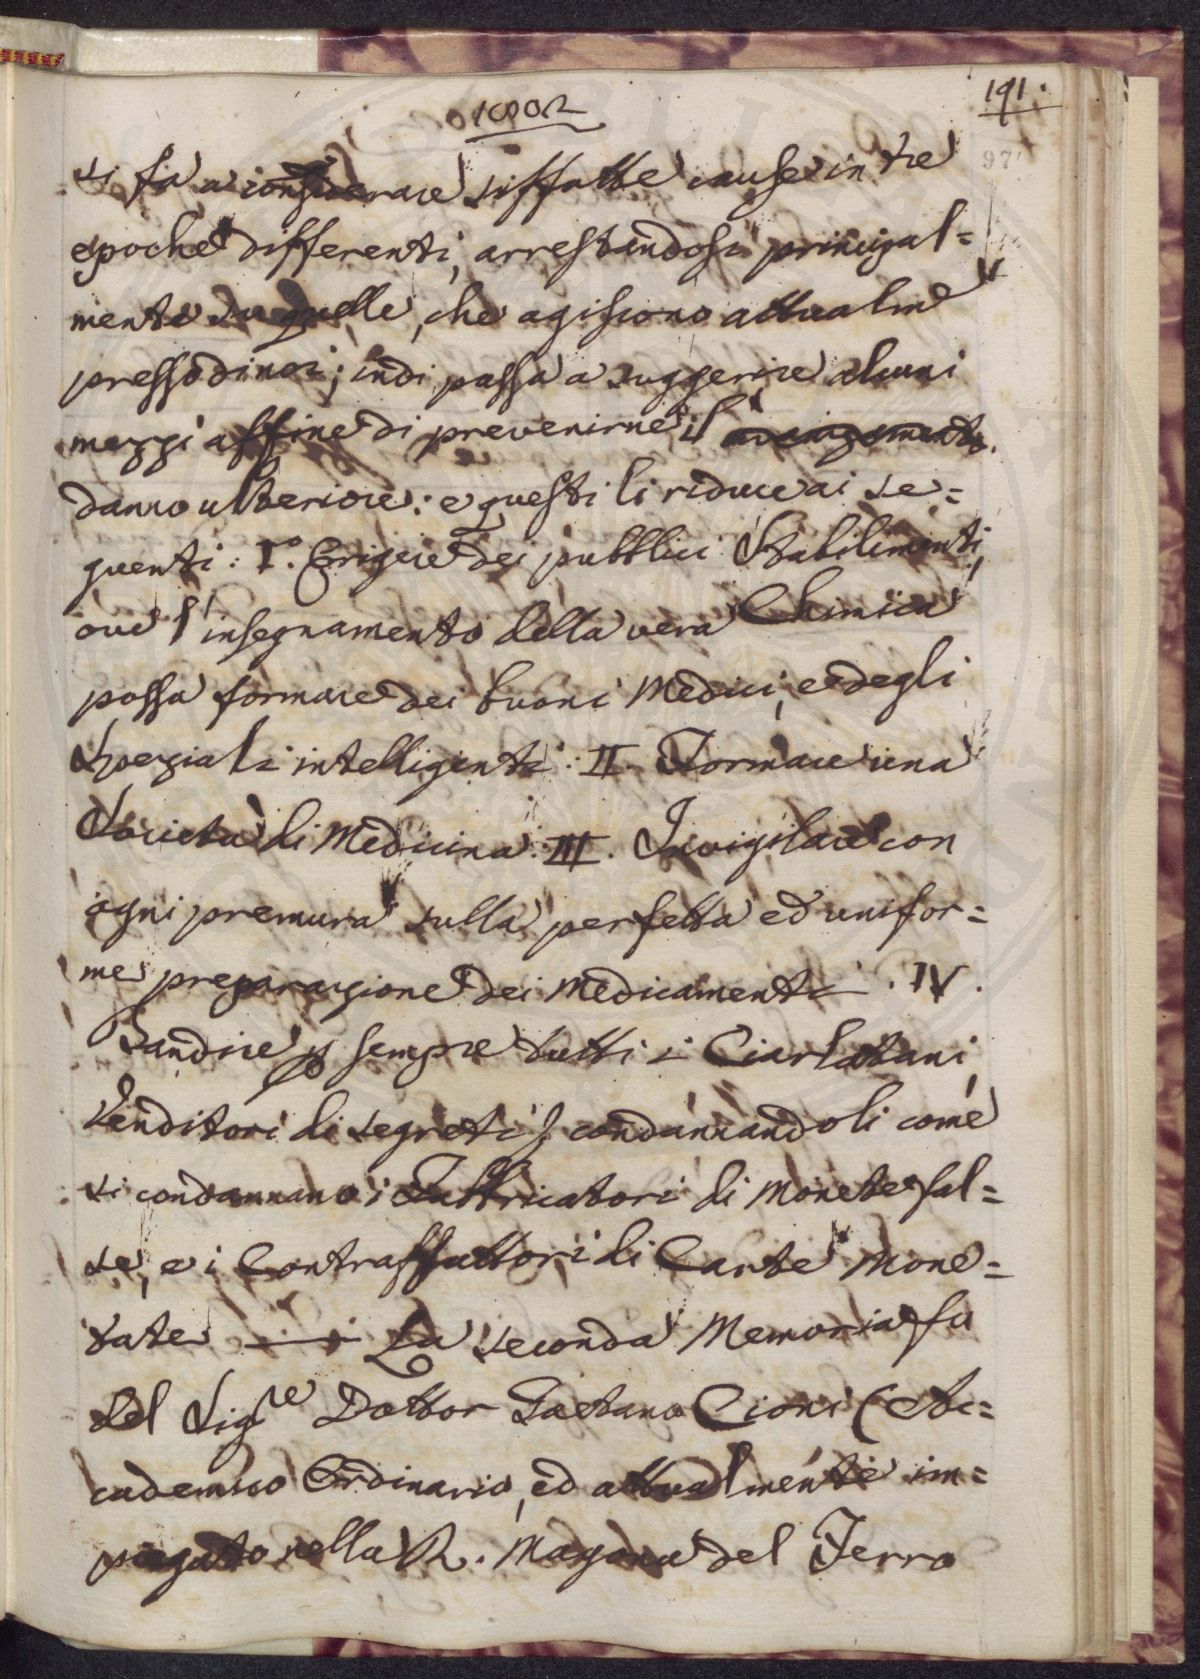 191.
1802
97
si fa a considerare siffatte cause in tre
epoche differenti, arrestandosi principal=
mente su quelle, che agiscono attualme
presso di noi; indi passa a suggerire alcuni
mezzi affine di prevenirne il
danno ulteriore: e questi li riduce ai se=
guenti: I.° Erigere dei pubblici Stabilimenti,
ove l'insegnamento della vera Chimica
possa formare dei buoni Medici, e degli
Speziali intelligenti: II. Formare una
Società di Medicina: III. Invigilare con
ogni premura sulla perfetta ed unifor=
me preparazione dei Medicamenti. IV.
Bandire p sempre tutti i Ciarlatani
Venditori di segreti, condannandoli come
si condannano i Fabbricatori di Monete fal=
se, e i Contraffattori di Carte Mone=
tate — La seconda Memoria fu
del Sigre Dottor Gaetano Cioni (Ac=
cademico Ordinario, ed attualmente im=
piegato nella R. Magona del Ferro